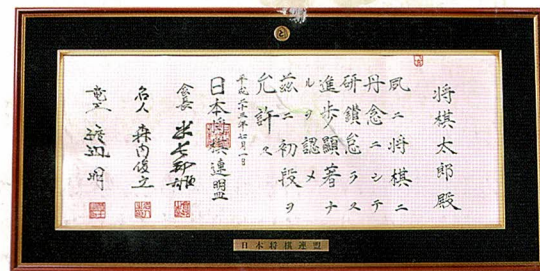 将棋太郎殿
夙ニ将棋ニ
丹念ニシテ
研鑚怠ラス
進歩顕著ナ
ルヲ認メ
茲ニ初段ヲ
允許ス
日本将棋連盟
会長
名人 森内俊之
竜王 渡辺明
日本将棋連盟